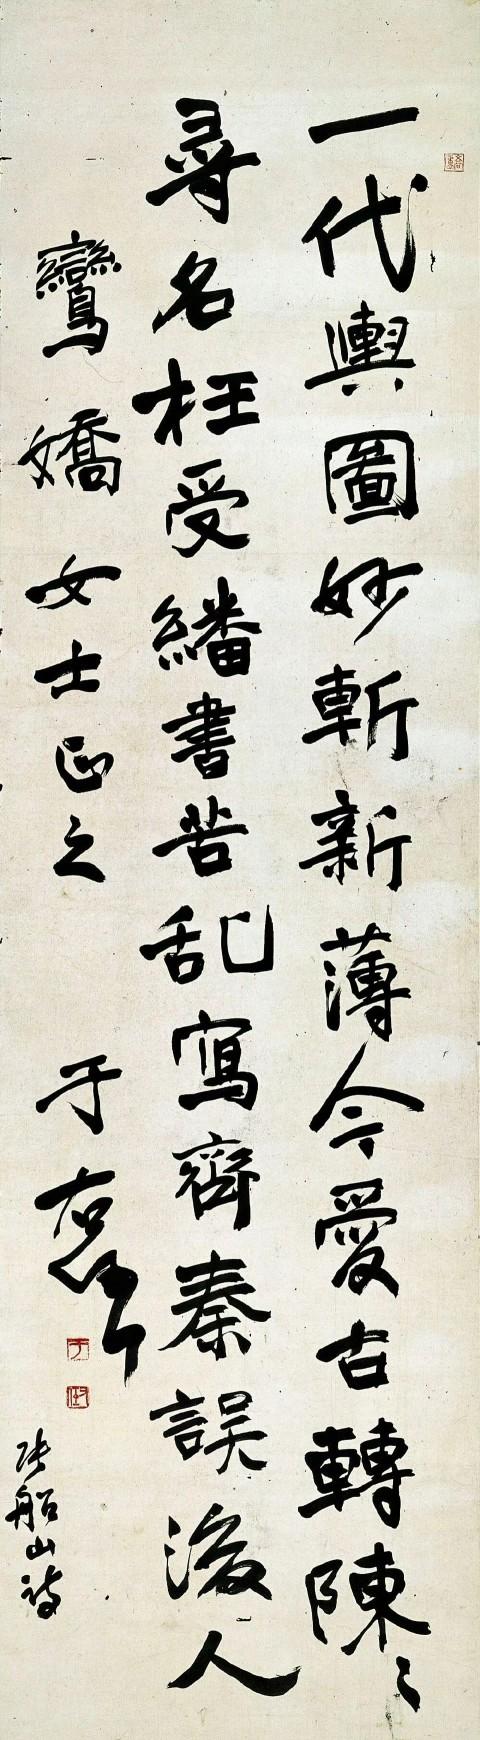 一代輿圖妙斬新薄今愛古轉陳〻
尋名枉受繙書苦乱寫齊秦誤後人
鸞嬌女士正之 于右任
于
張船山詩